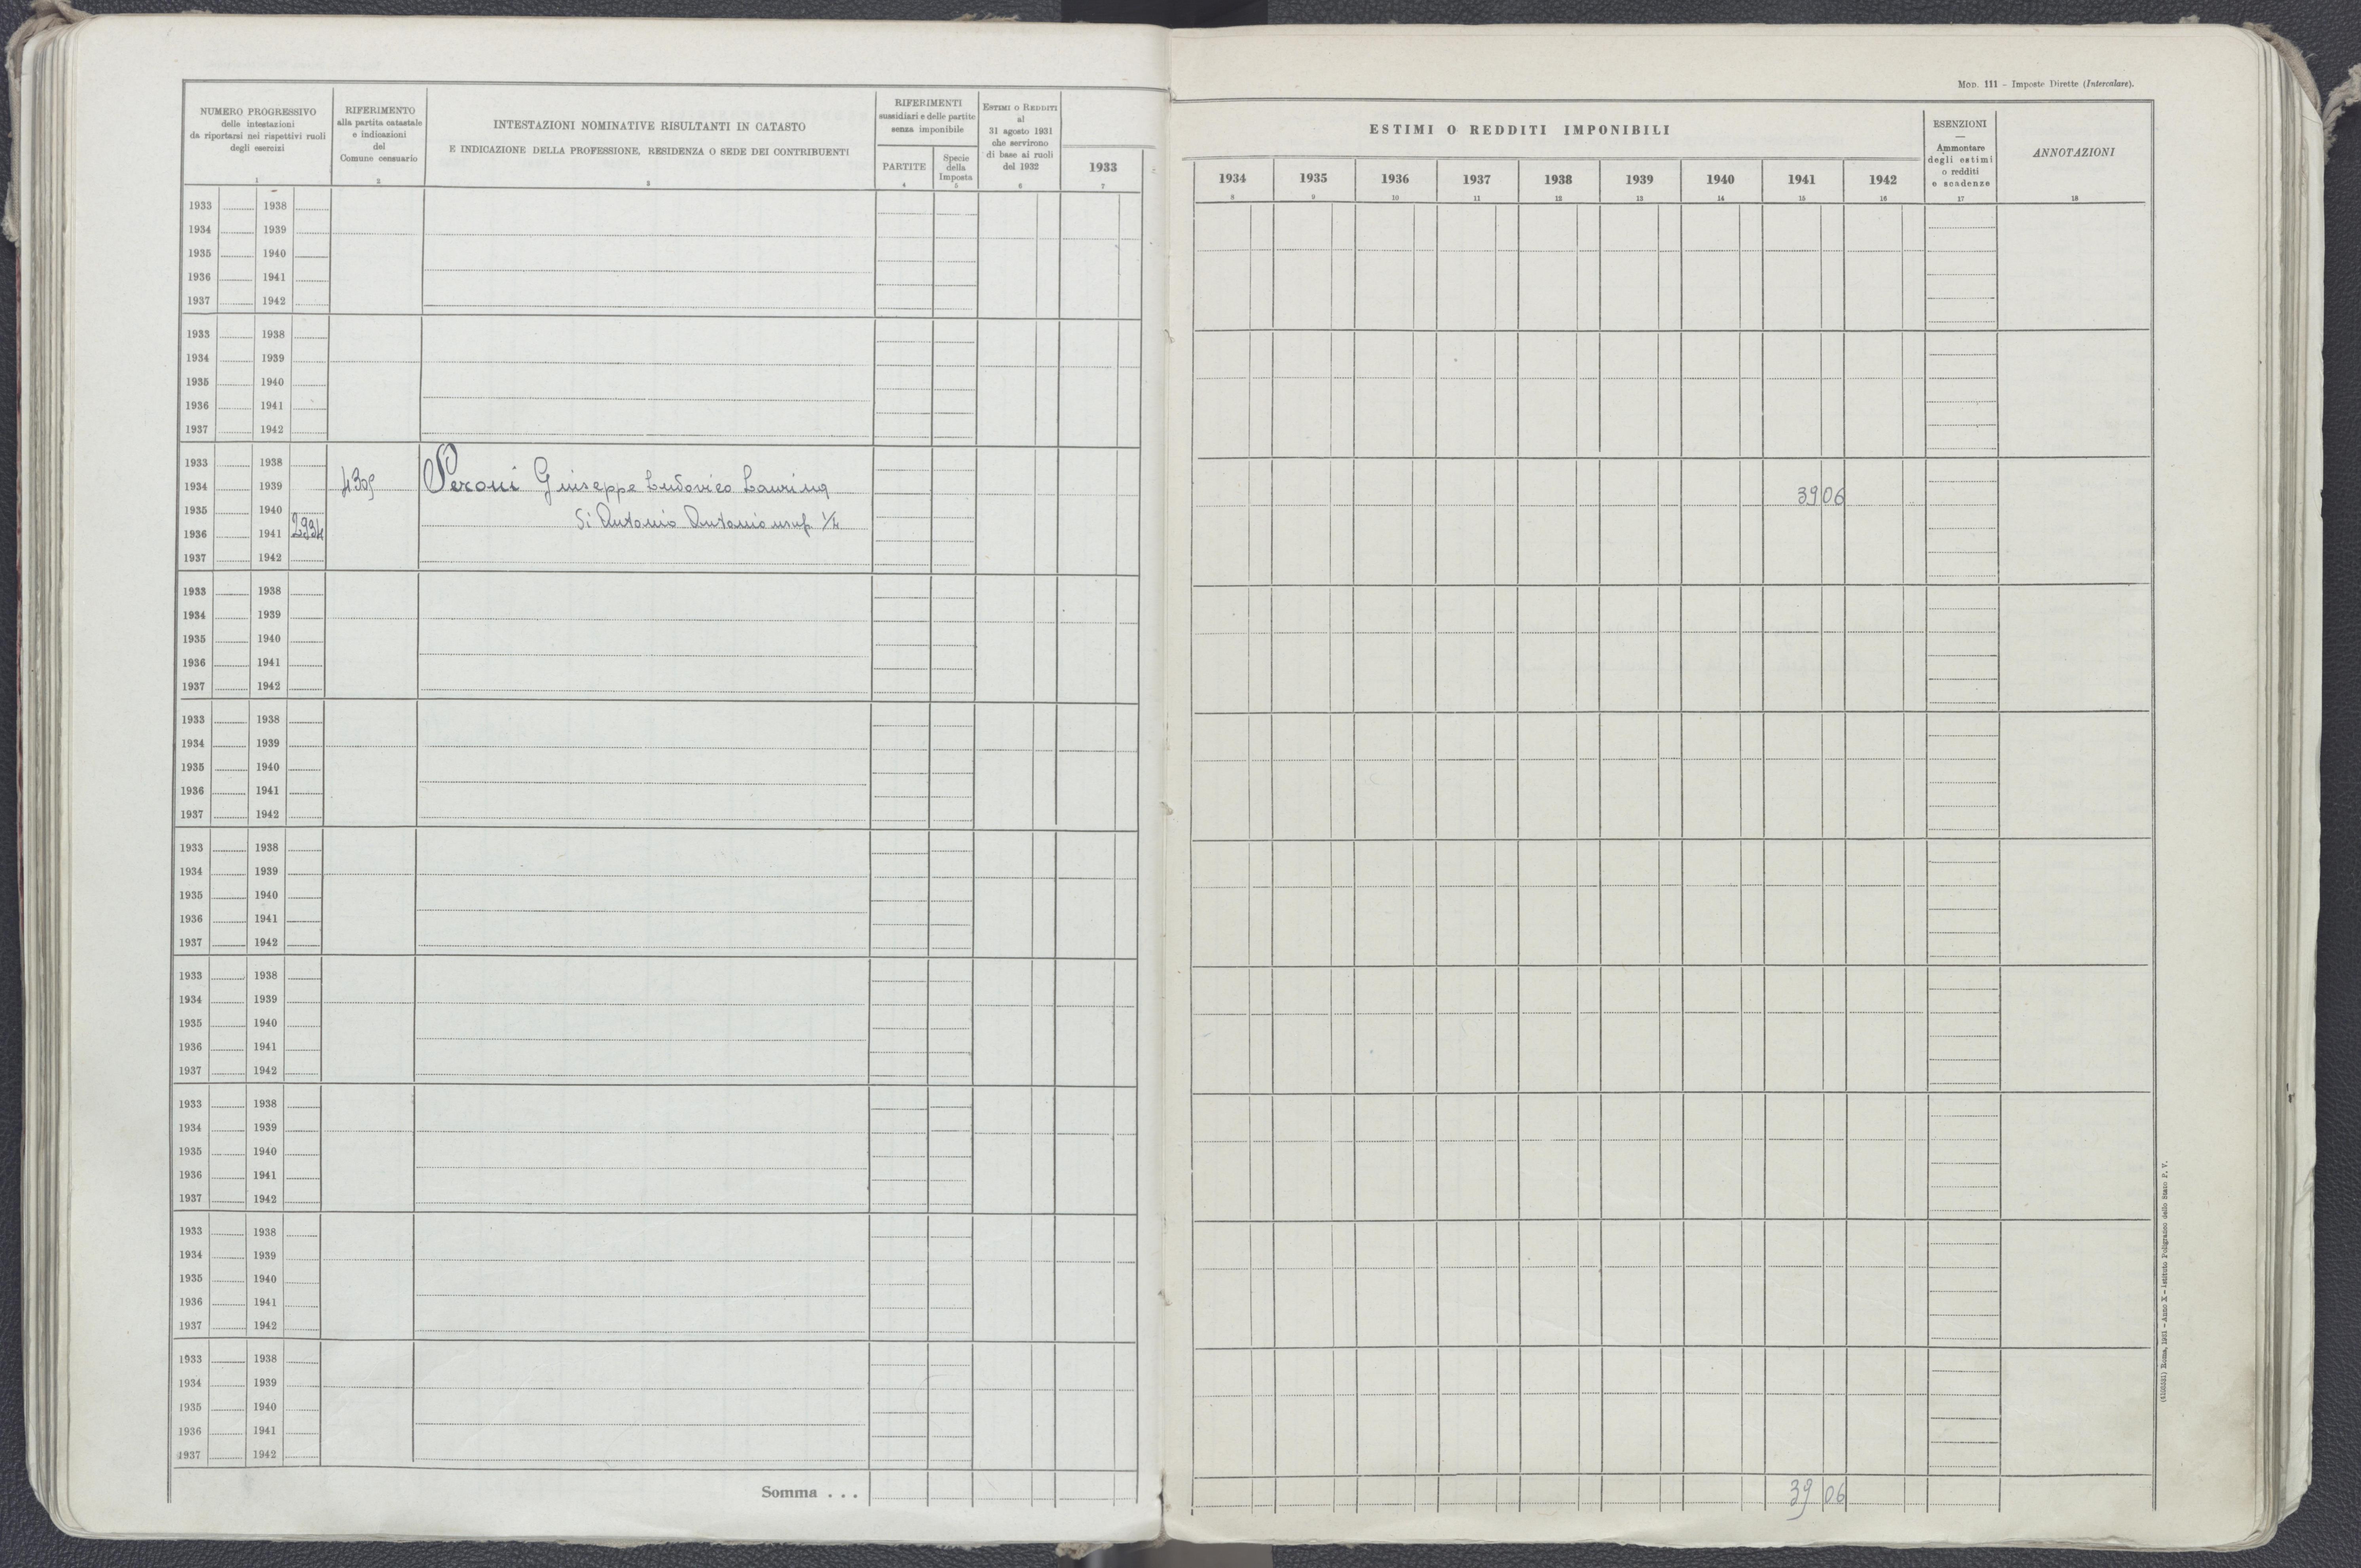 NUMERO PROGRESSIVO
delle intestazioni
da riportarsi nei rispettivi ruoli
degli esercizi
1
RIFERIMENTO
alla partita catastale
e indicazioni
del
Comune censuario
2
INTESTAZIONI NOMINATIVE RISULTANTI IN CATASTO
E INDICAZIONE DELLA PROFESSIONE, RESIDENZA O SEDE DEI CONTRIBUENTI
3
RIFERIMENTI
sussidiari e delle partite
senza imponibile
PARTITE
4
Specie
della
Imposta
5
ESTIMI O REDDITI
al
31 agosto 1931
che servirono
di base ai ruoli
del 1932
6
1933
7
1933 1938
1934 1939
1935 1940
1936 1941
1937 1942
1933 1938
1934 1939
1935 1940
1936 1941
1937 1942
1933 1938
1934 1939 4305 Peroni Giuseppe Ludovico Laurina
1935 1940 di Antonio Antonio usuf. 1/4
1936 1941 2934
1937 1942
1933 1938
1934 1939
1935 1940
1936 1941
1937 1942
1933 1938
1934 1939
1935 1940
1936 1941
1937 1942
1933 1938
1934 1939
1935 1940
1936 1941
1937 1942
1933 1938
1934 1939
1935 1940
1936 1941
1937 1942
1933 1938
1934 1939
1935 1940
1936 1941
1937 1942
1933 1938
1934 1939
1935 1940
1936 1941
1937 1942
1933 1938
1934 1939
1935 1940
1936 1941
1937 1942
Somma . . .
MOD. 111 - Imposte Dirette (Intercalare).
ESTIMI O REDDITI IMPONIBILI
1934 1935 1936 1937 1938 1939 1940 1941 1942
8 9 10 11 12 13 14 15 16
ESENZIONI
—
Ammontare
degli estimi
o redditi
e scadenze
17
ANNOTAZIONI
18
39 06
39 06
(4105551) Roma, 1931 - Anno X - Istituto Poligrafico dello Stato P. V.